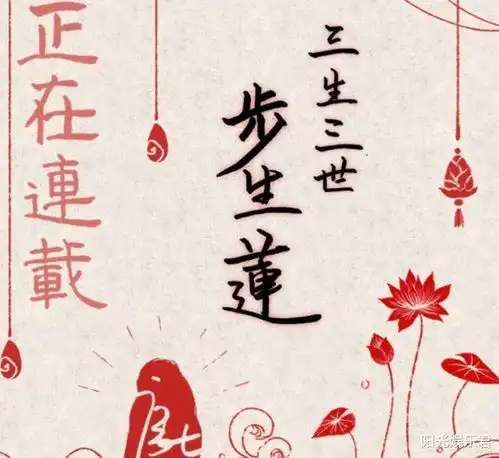 三生三世
步生蓮
正在連載
阳光娱乐君